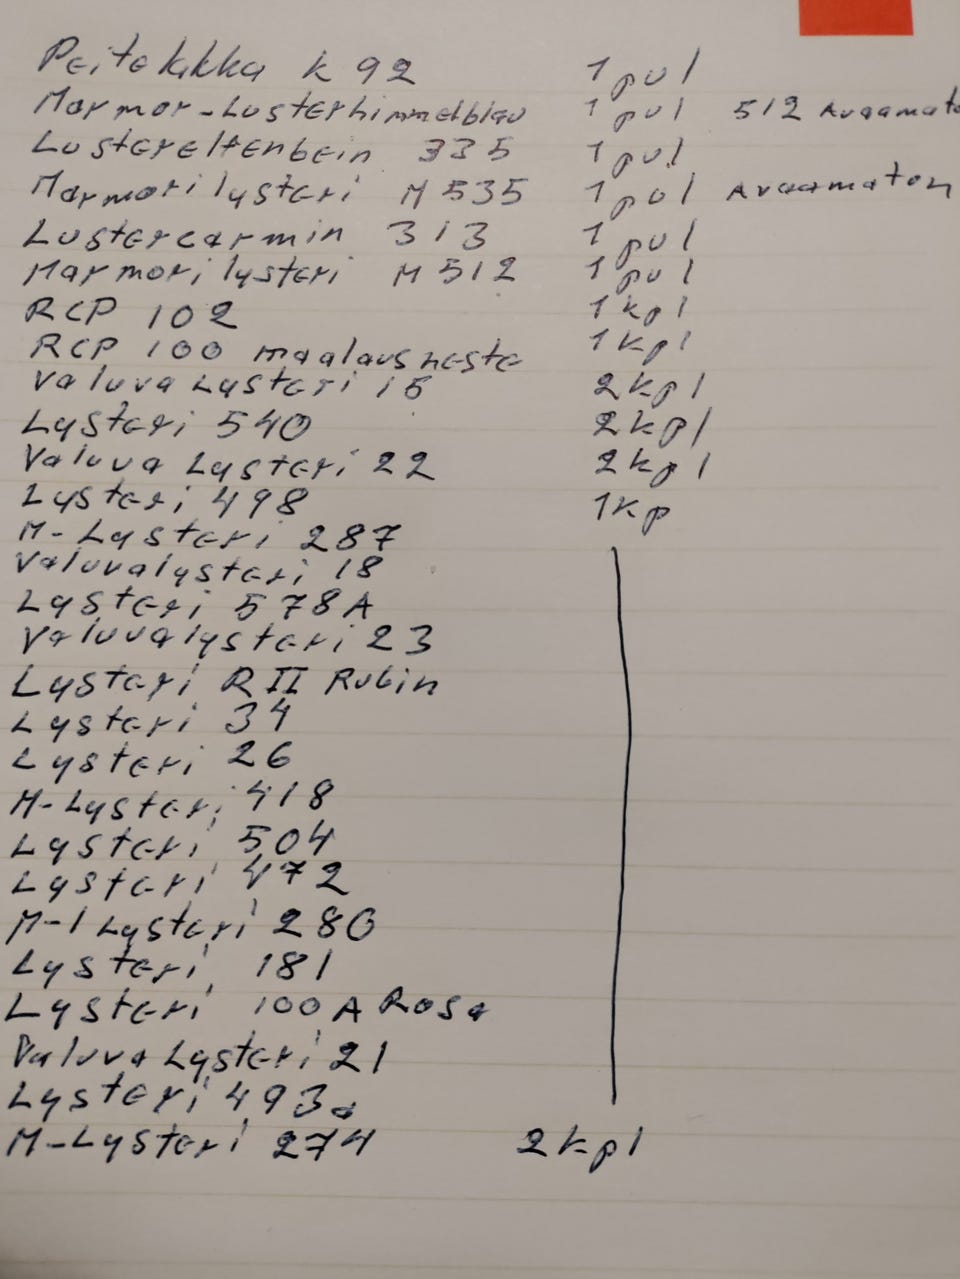 Peitelakka K 92 1 pul
Marmor-Lusterhimmelblau 1 pul 512 Avaamato
Lustereltenbein 335 1 pul
Marmorilysteri M 535 1 pul Avaamaton
Lustercarmin 313 1 pul
Marmorilysteri M 512 1 pul
RCP 102 1 kpl
RCP 100 maalausneste 1 kpl
Valuva Lysteri 15 2 kpl
Lysteri 540 2 kpl
Valuva Lysteri 22 2 kpl
Lysteri 498 1 kp
M-Lysteri 287
Valuvalysteri 18
Lysteri 578 A
Valuvalysteri 23
Lysteri R II Rubin
Lysteri 34
Lysteri 26
M-Lysteri 418
Lysteri 504
Lysteri 472
M-1 Lysteri 280
Lysteri 181
Lysteri 100 A Rosa
Valuva Lysteri 21
Lysteri 493a
M-Lysteri 274 2 kpl